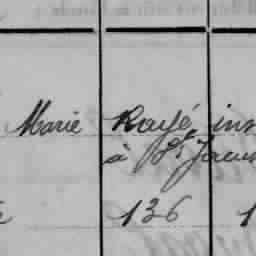 Marie Rayé ins
à St Jacus
136 1